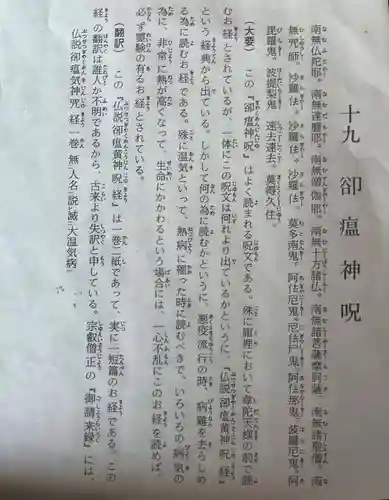 十九 卻瘟神呪
南無仏陀耶。南無達磨耶。南無僧伽耶。南無十方諸仏。南無諸菩薩摩訶薩。南無諸聖僧。南
無呪師。沙羅佉。沙羅佉。沙羅佉。莫多南鬼。阿佉尼鬼。尼佉尸鬼。阿佉那鬼。波羅尼鬼。阿
毘羅鬼。波提梨鬼。速去速去。莫得久住。
(大要) この『卻瘟神呪』はよく読まれる呪文である。殊に羅漢において韋陀天様の前で誦
むお経とされているが、一体にこの呪文は何れより出ているかというに、『仏説卻瘟黄神呪経』
という経典から出ている。しかして何の為に読むかというに、悪疫流行の時、病難を去らしめ
る為に読むお経である。殊に温気といって、熱病に罹った時に読むべきで、いろいろの病気の
為に、非常に熱が高くなって、生命にかかわるという場合には、一心不乱にこのお経を読めば、
必ず霊験の有るお経とされている。
(翻訳) この『仏説卻瘟黄神呪経』は一巻二紙であって、実に一短篇のお経である。この
経の翻訳は誰人か不明であるから、古来より失訳と申している。宗叡僧正の『御請来録』には、
仏説卻瘟気神呪経一巻 無人名 説滅大温気病